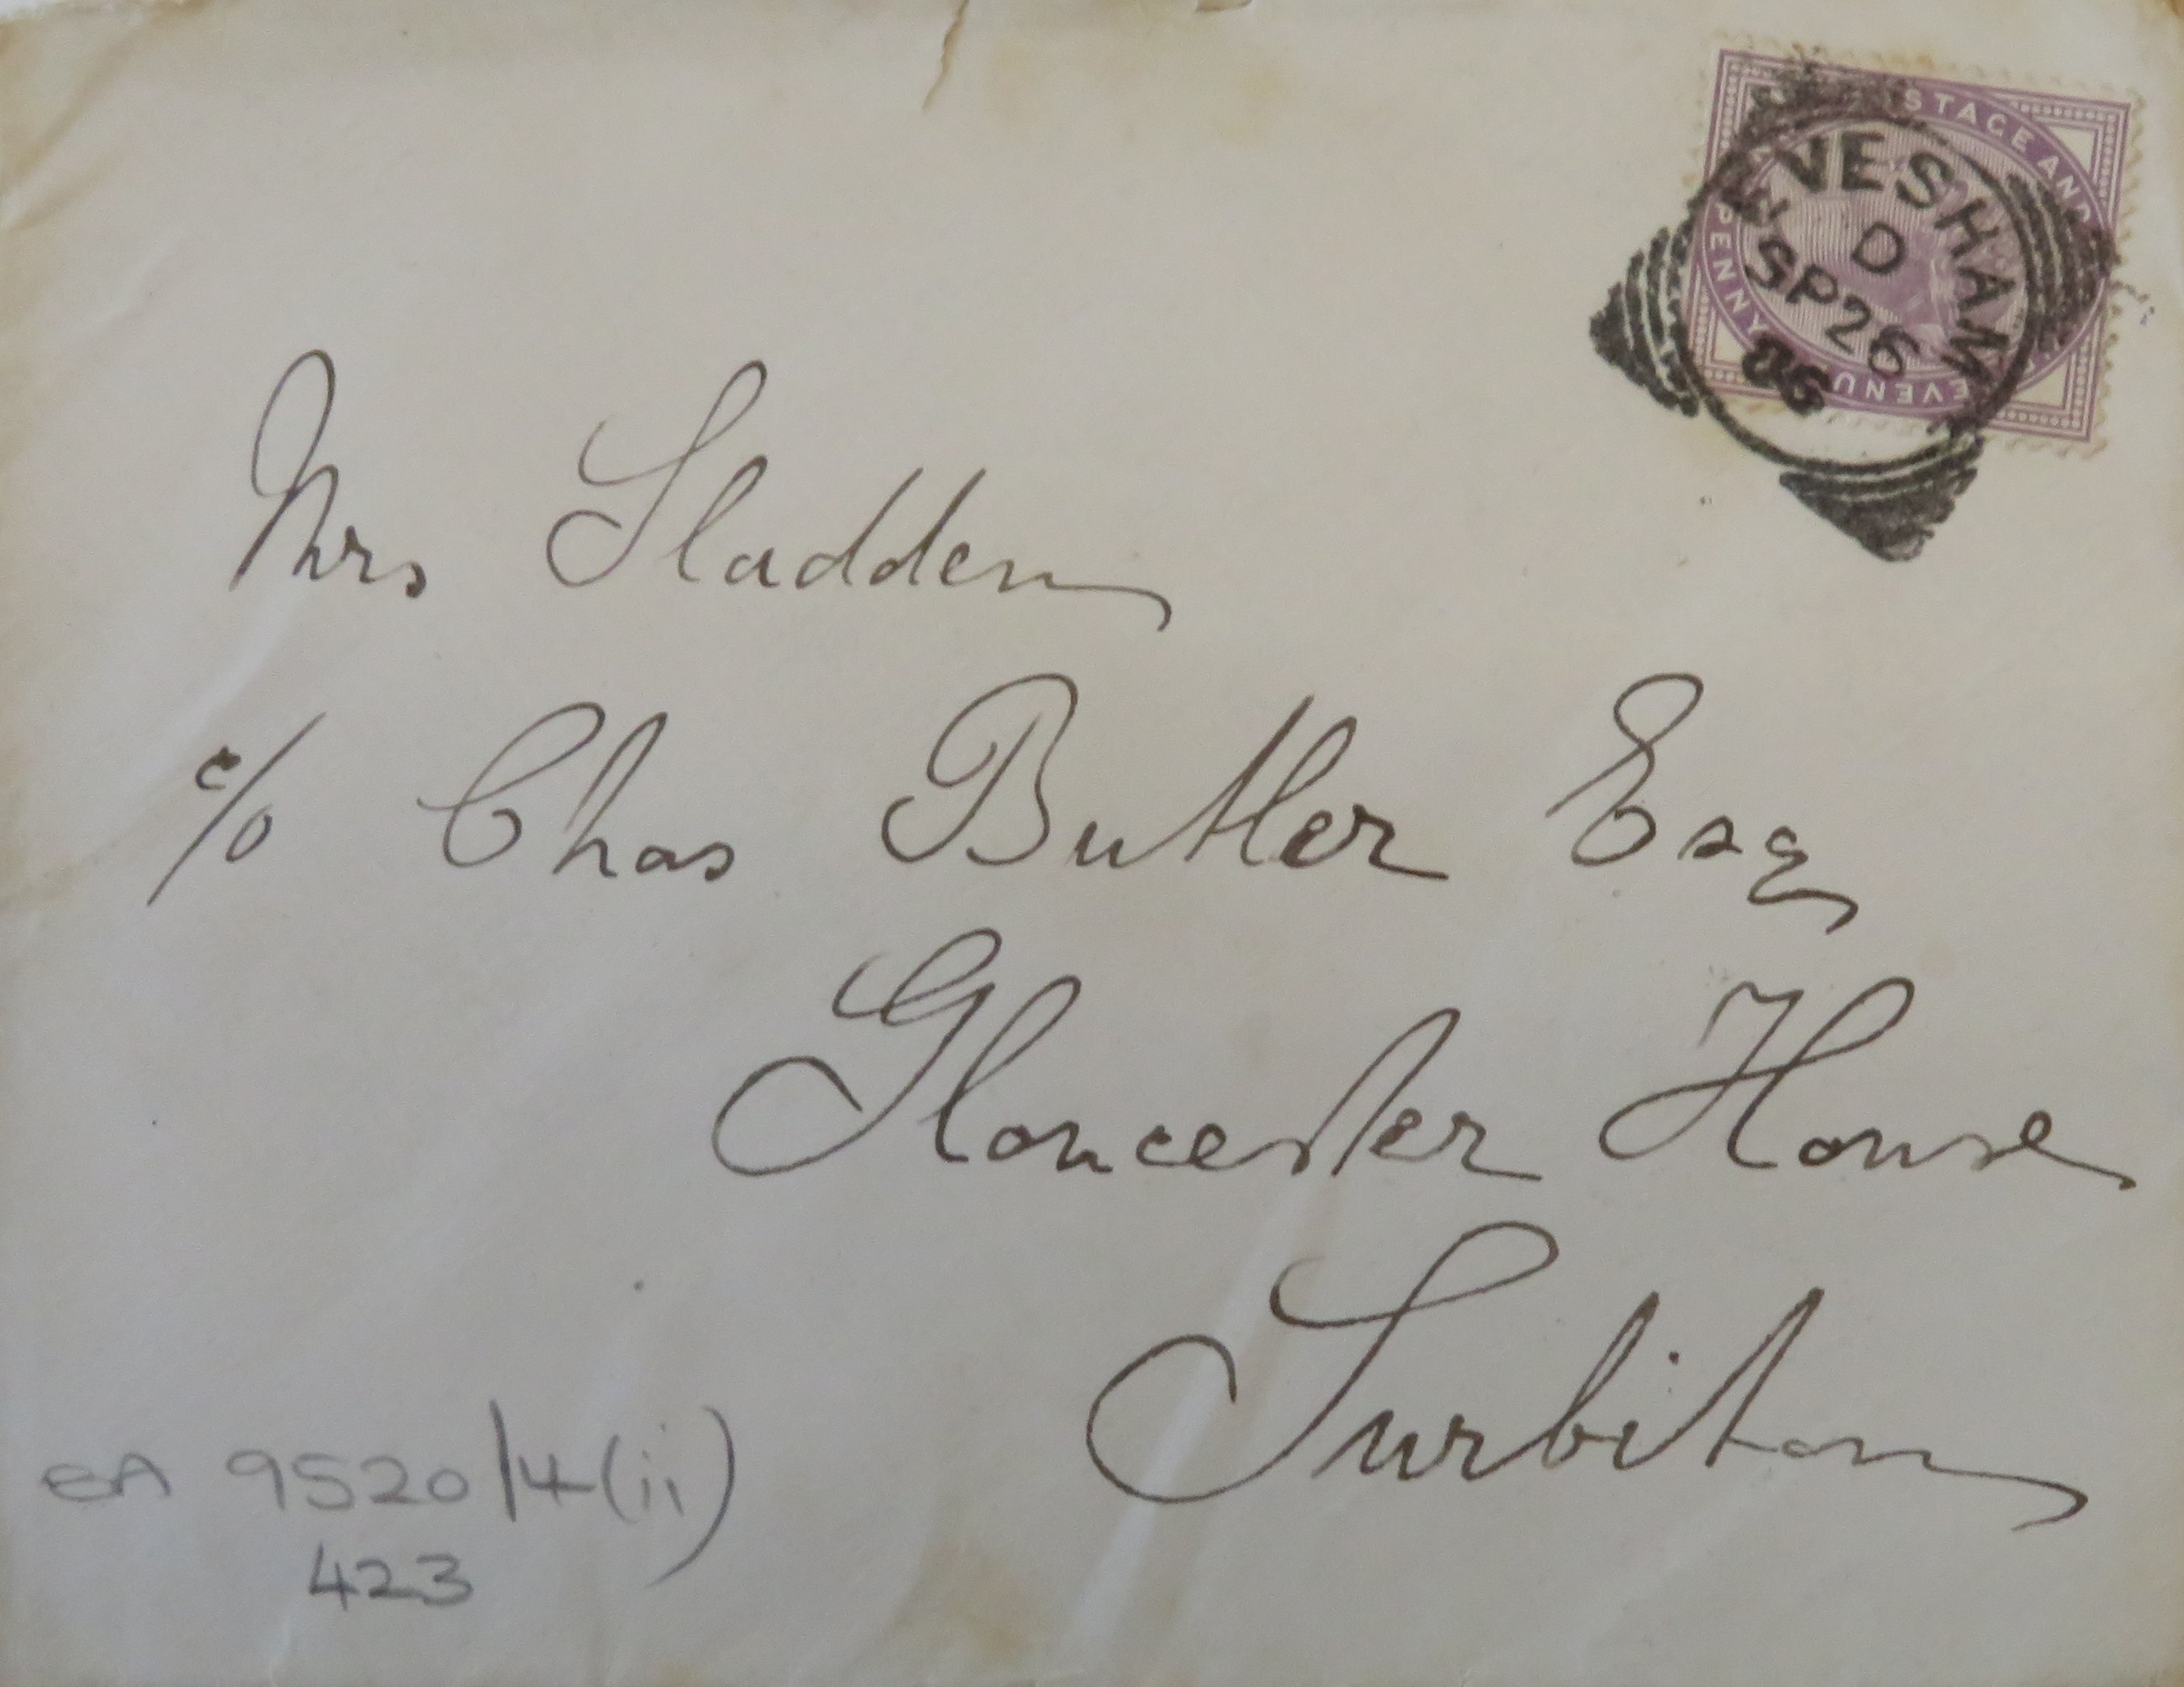 STAGE AND
EVENU
PENNY
EVESHAM
D
SP 26
86
Mrs Sladden
c/o Chas Butler Esq
Gloucester House
Surbiton
EA 9520/4(ii)
423